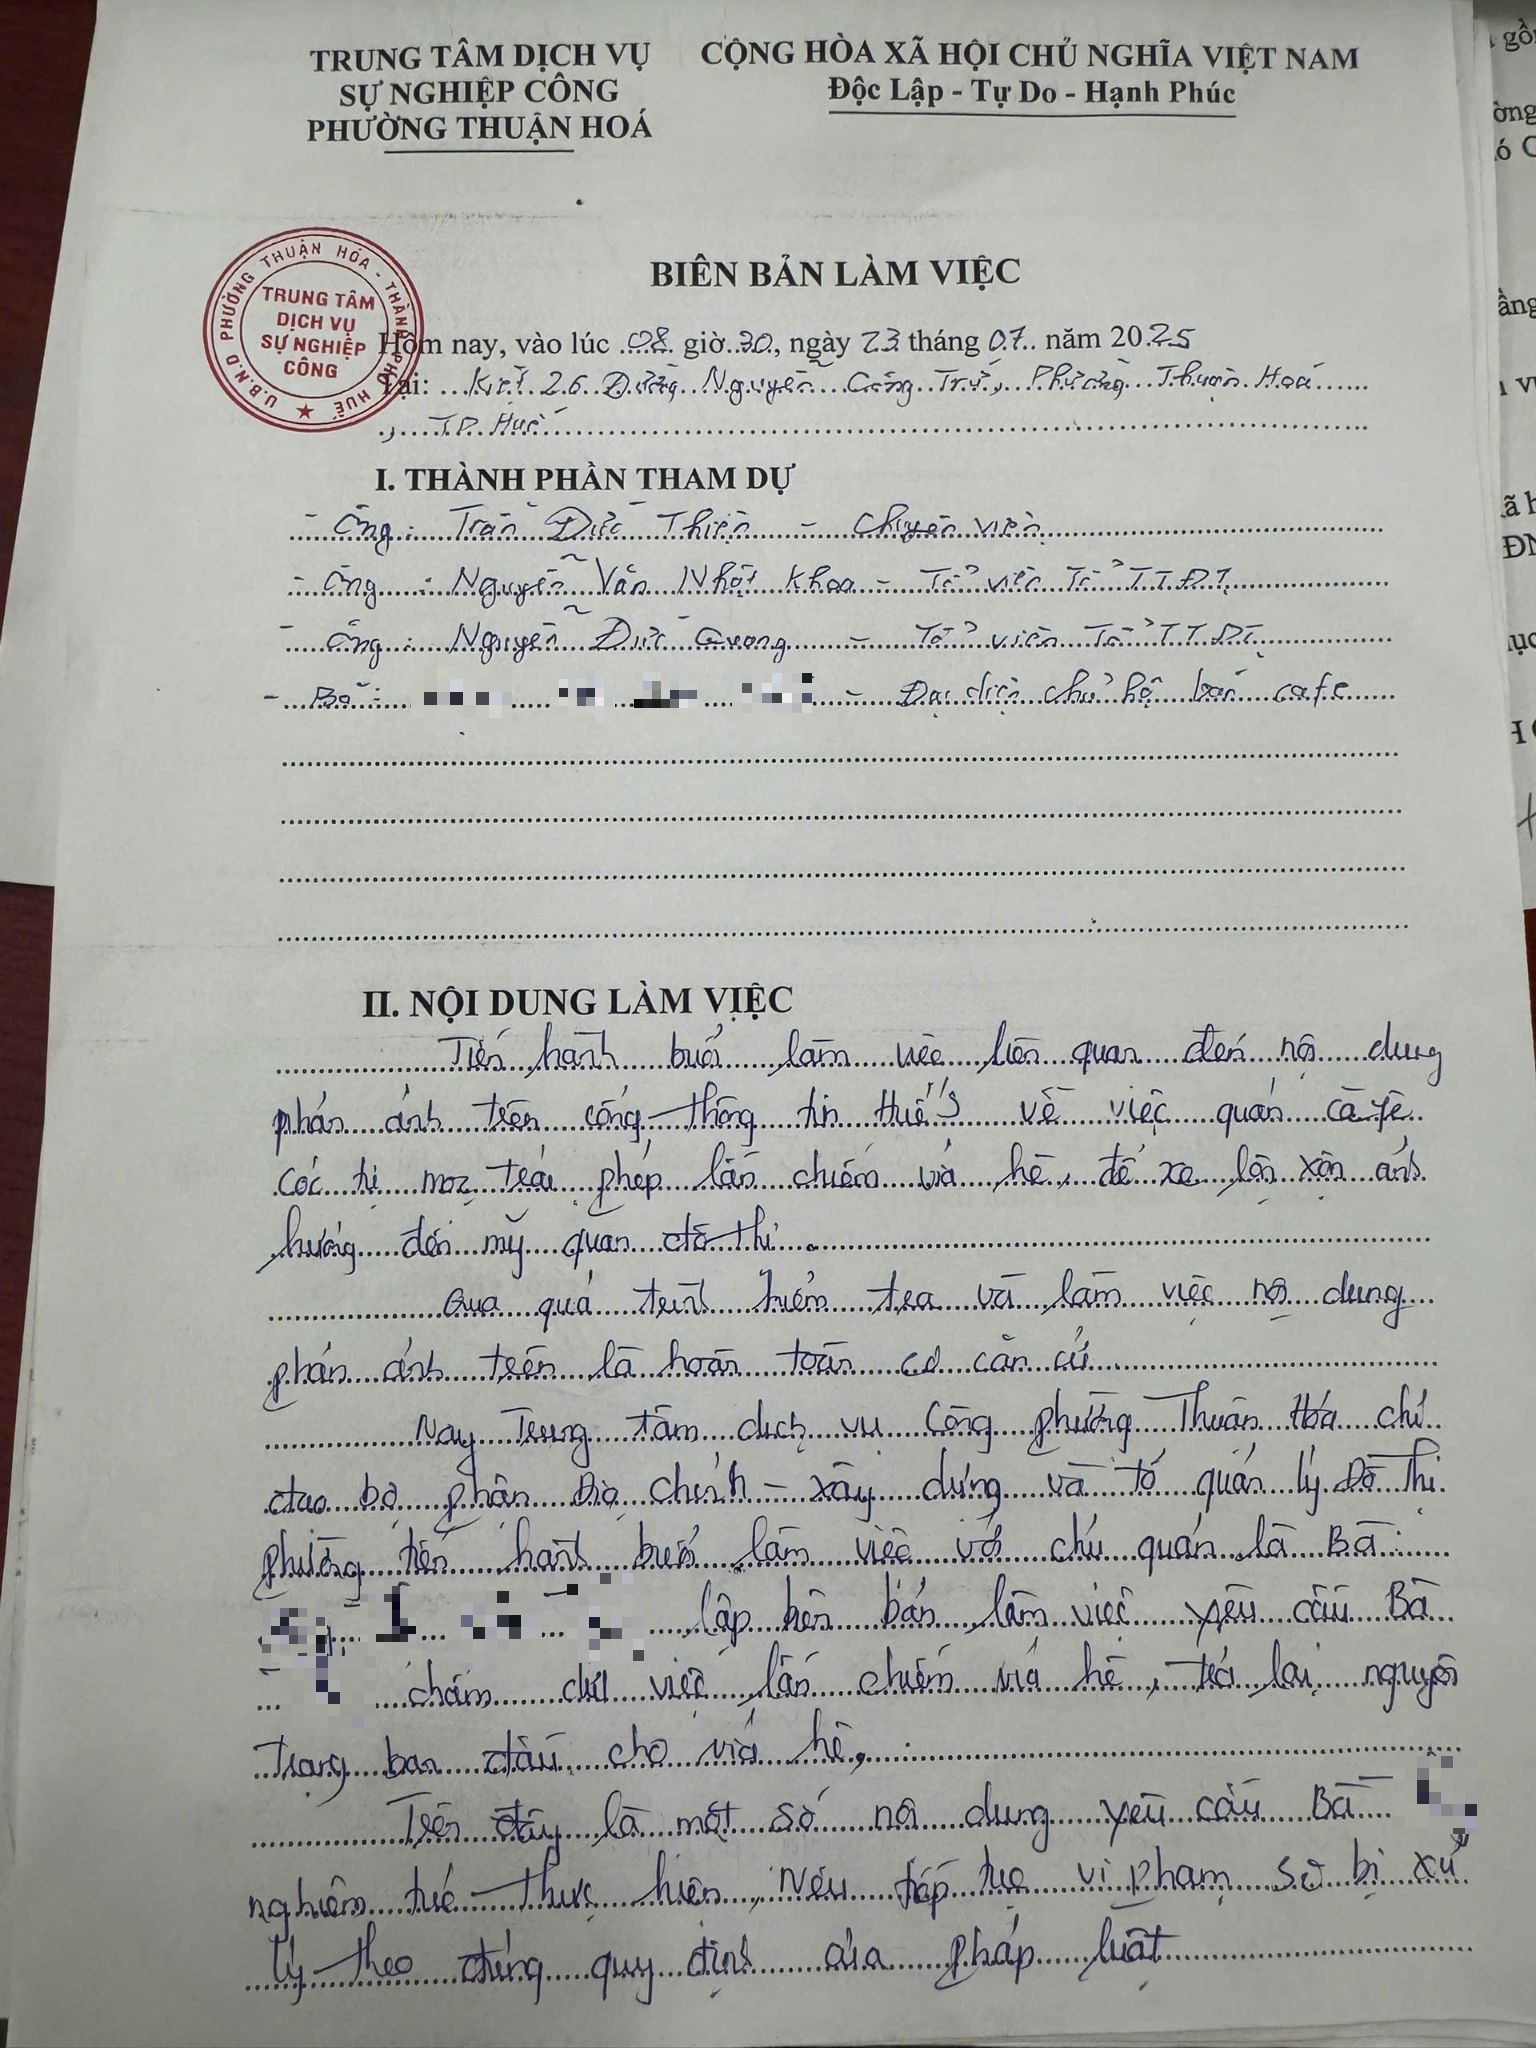 TRUNG TÂM DỊCH VỤ
SỰ NGHIỆP CÔNG
PHƯỜNG THUẬN HOÁ
CỘNG HÒA XÃ HỘI CHỦ NGHĨA VIỆT NAM
Độc Lập - Tự Do - Hạnh Phúc
U.B.N.D PHƯỜNG THUẬN HÓA - THÀNH PHỐ HUẾ
TRUNG TÂM
DỊCH VỤ
SỰ NGHIỆP
CÔNG
BIÊN BẢN LÀM VIỆC
Hôm nay, vào lúc 08 giờ 30, ngày 23 tháng 07 năm 2025
Tại: Kiệt 26 Đường Nguyễn Công Trứ, Phường Thuận Hoá
, TP Huế
I. THÀNH PHẦN THAM DỰ
- Ông : Trần Đức Thiện - Chuyên viên
- Ông : Nguyễn Văn Nhật Khoa - Tổ viên Tổ TTĐT
- Ông : Nguyễn Đức Cương - Tổ viên Tổ TTĐT
- Bà : - Đại diện chủ hộ bán cafe
II. NỘI DUNG LÀM VIỆC
Tiến hành buổi làm việc liên quan đến nội dung
phản ánh trên cổng thông tin Huế S về việc quán cà fê
cóc tự mở trái phép lấn chiếm vỉa hè, để xe lộn xộn ảnh
hưởng đến mỹ quan đô thị.
Qua quá trình kiểm tra và làm việc nội dung
phản ánh trên là hoàn toàn có căn cứ
Nay Trung tâm dịch vụ Công phường Thuận Hóa chỉ
đạo bộ phận Địa chính - xây dựng và tổ quản lý Đô Thị
phường tiến hành buổi làm việc với chủ quán là Bà :
lập biên bản làm việc yêu cầu Bà
chấm dứt việc lấn chiếm vỉa hè, trả lại nguyên
trạng ban đầu cho vỉa hè,
Trên đây là một số nội dung yêu cầu Bà
nghiêm túc thực hiện, Nếu tiếp tục vi phạm sẽ bị xử
lý theo đúng quy định của pháp luật